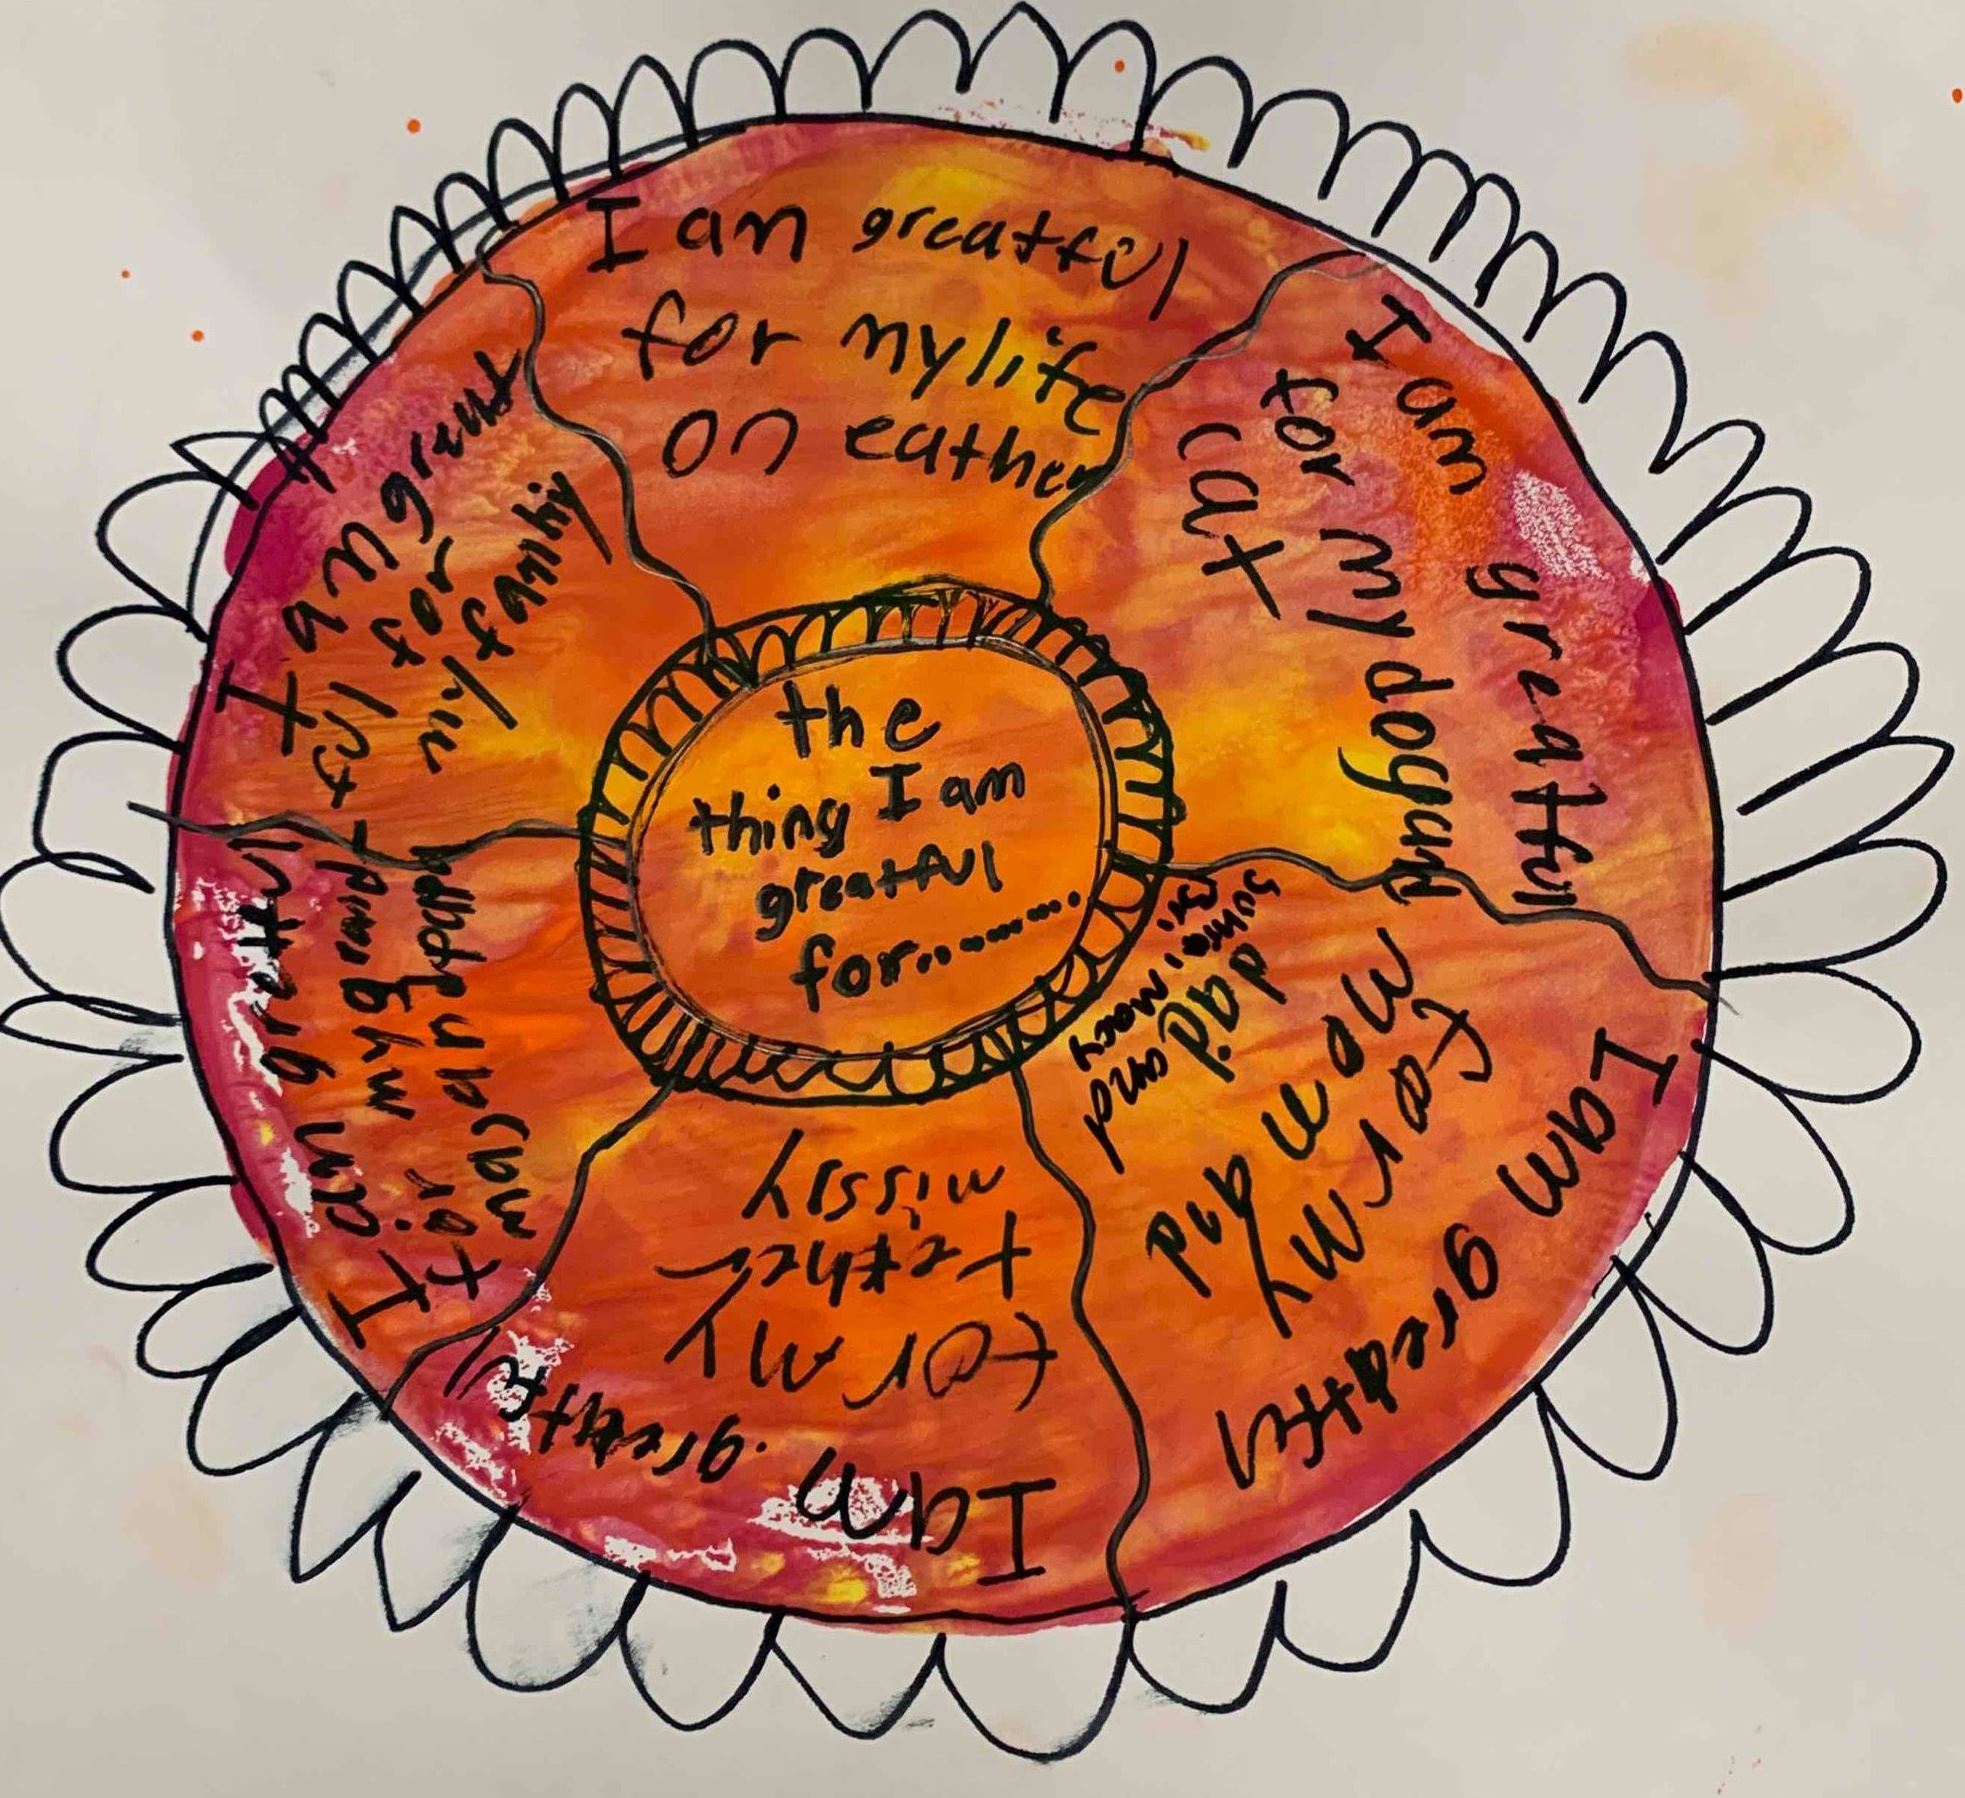 the
thing I am
greatful
for..........
I am greatful
for my life
on eather
I am greatful
for my dog und
cat
I am greadful
for my
mom and
dad. and
macy
I am greatful
for my
tether
missy
I am greatful
for my grand-
ma and pappa
I am great
ful for
my famhiy